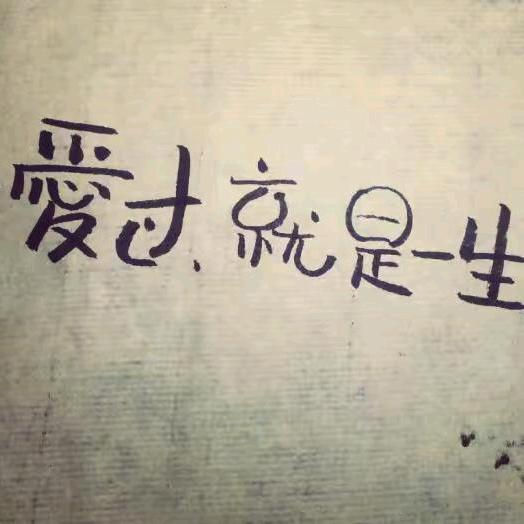 愛过、就是一生